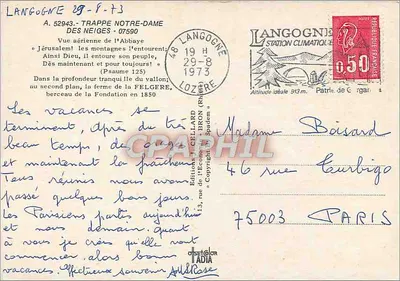 LANGOGNE 29-8-73
A. 52943. - TRAPPE NOTRE-DAME
DES NEIGES - 07590
Vue aérienne de l'Abbaye
« Jérusalem! les montagnes l'entourent;
Ainsi Dieu, il entoure son peuple,
Dès maintenant et pour toujours! »
(Psaume 125)
Dans la profondeur tranquille du vallon,
au second plan, la ferme de la FELGERE,
berceau de la Fondation en 1850
48 LANGOGNE
19 H
29-8
1973
LOZÈRE
LANGOGNE
STATION CLIMATIQUE
Altitude idéale 913 m.
0,50
Les vacances se
terminent, Après du très
beau temps, de orage
et maintenant la fraîcheur
Tous réunis nous avons
passé quelques bons jours.
Les Parisiens partis aujourd'hui
et nous demain. quant
à vous je crois qu'elles vont
commencer. alors bons
vacances. Affectueux souvenir
Editions CELLARD - BRON
Madame Boisard
46 rue Turbigo
75003 PARIS
CPHIL